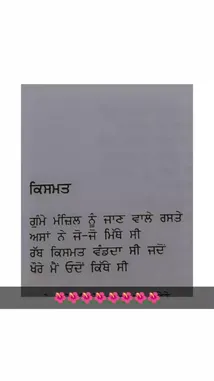 ਕਿਸਮਤ
ਗੁਮੇ ਮੰਜ਼ਿਲ ਨੂੰ ਜਾਣ ਵਾਲੇ ਰਸਤੇ
ਅਸਾਂ ਨੇ ਜੋ-ਜੋ ਮਿੱਥੇ ਸੀ
ਰੱਬ ਕਿਸਮਤ ਵੰਡਦਾ ਸੀ ਜਦੋਂ
ਖੌਰੇ ਮੈਂ ਓਦੋਂ ਕਿੱਥੇ ਸੀ